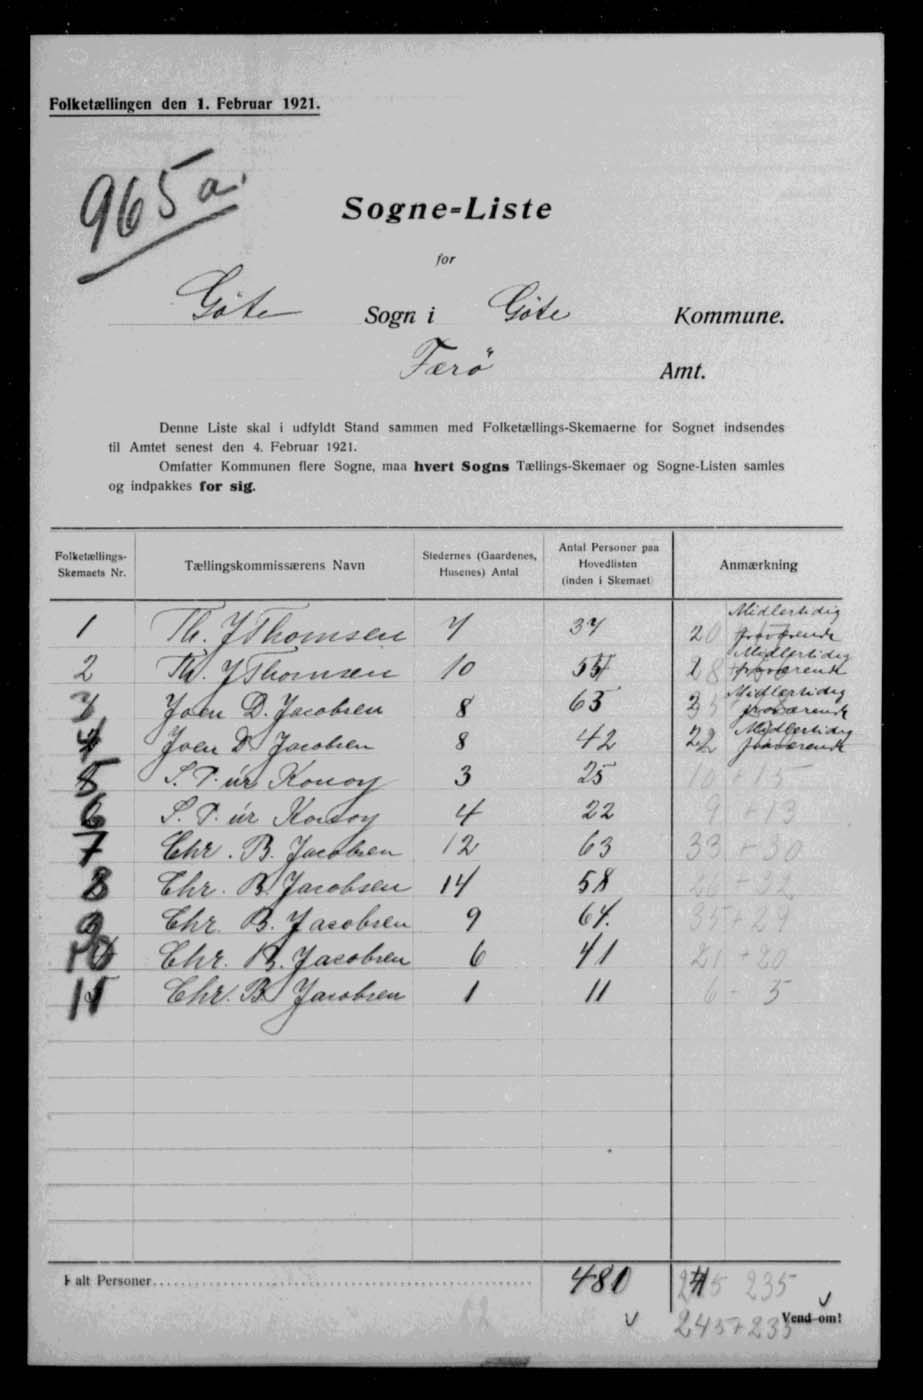 Folketællingen den 1. Februar 1921.
965 a.
Sogne-Liste
for
Gøte Sogn i Gøte Kommune.
Færö Amt.
Denne Liste skal i udfyldt Stand sammen med Folketællings-Skemaerne for Sognet indsendes
til Amtet senest den 4. Februar 1921.
Omfatter Kommunen flere Sogne, maa hvert Sogns Tællings-Skemaer og Sogne-Listen samles
og indpakkes for sig.
Folketællings-Skemaets Nr. Tællingskommissærens Navn Stedernes (Gaardenes, Husenes) Antal Antal Personer paa Hovedlisten (inden i Skemaet) Anmærkning
1 Th. J Thomsen 7 37 20 Midlertidig fraværende
2 Th. J Thomsen 10 28 Midlertidig fraværende
3 Joen D. Jacobsen 8 65 Midlertidig fraværende
4 Joen D Jacobsen 8 42 22 Midlertidig fraværende
5 S. P. úr Konoy 3 25 10 + 15
6 S. P. úr Konoy 4 22 9 + 13
7 Chr. B. Jacobsen 12 63 33 + 30
8 Chr. B. Jacobsen 14 58 26 + 32
9 Chr. B. Jacobsen 9 64. 35 + 29
10 Chr. B. Jacobsen 6 41 21 + 20
11 Chr. B. Jacobsen 1 11 6 - 5
I alt Personer 480 245 235
245+235
Vend om!